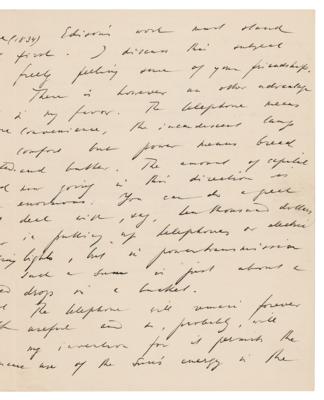 (1834) Edison's work must stand
first. I discuss this subject
freely feeling sure of your friendship.
There is however an other advantage
is in my favor. The telephone means
convenience, the incandescent lamp
comfort but power means bread
and butter. The amount of capital
now going in this direction is
enormous. You can do a great
deal with, say, ten thousand dollars
in putting up telephones or electric
lights, but in power transmission
such a sum is just about a
drop in a bucket.
The telephone will remain forever
useful and so, probably, will
my invention for it permits the
use of the Sun's energy in the